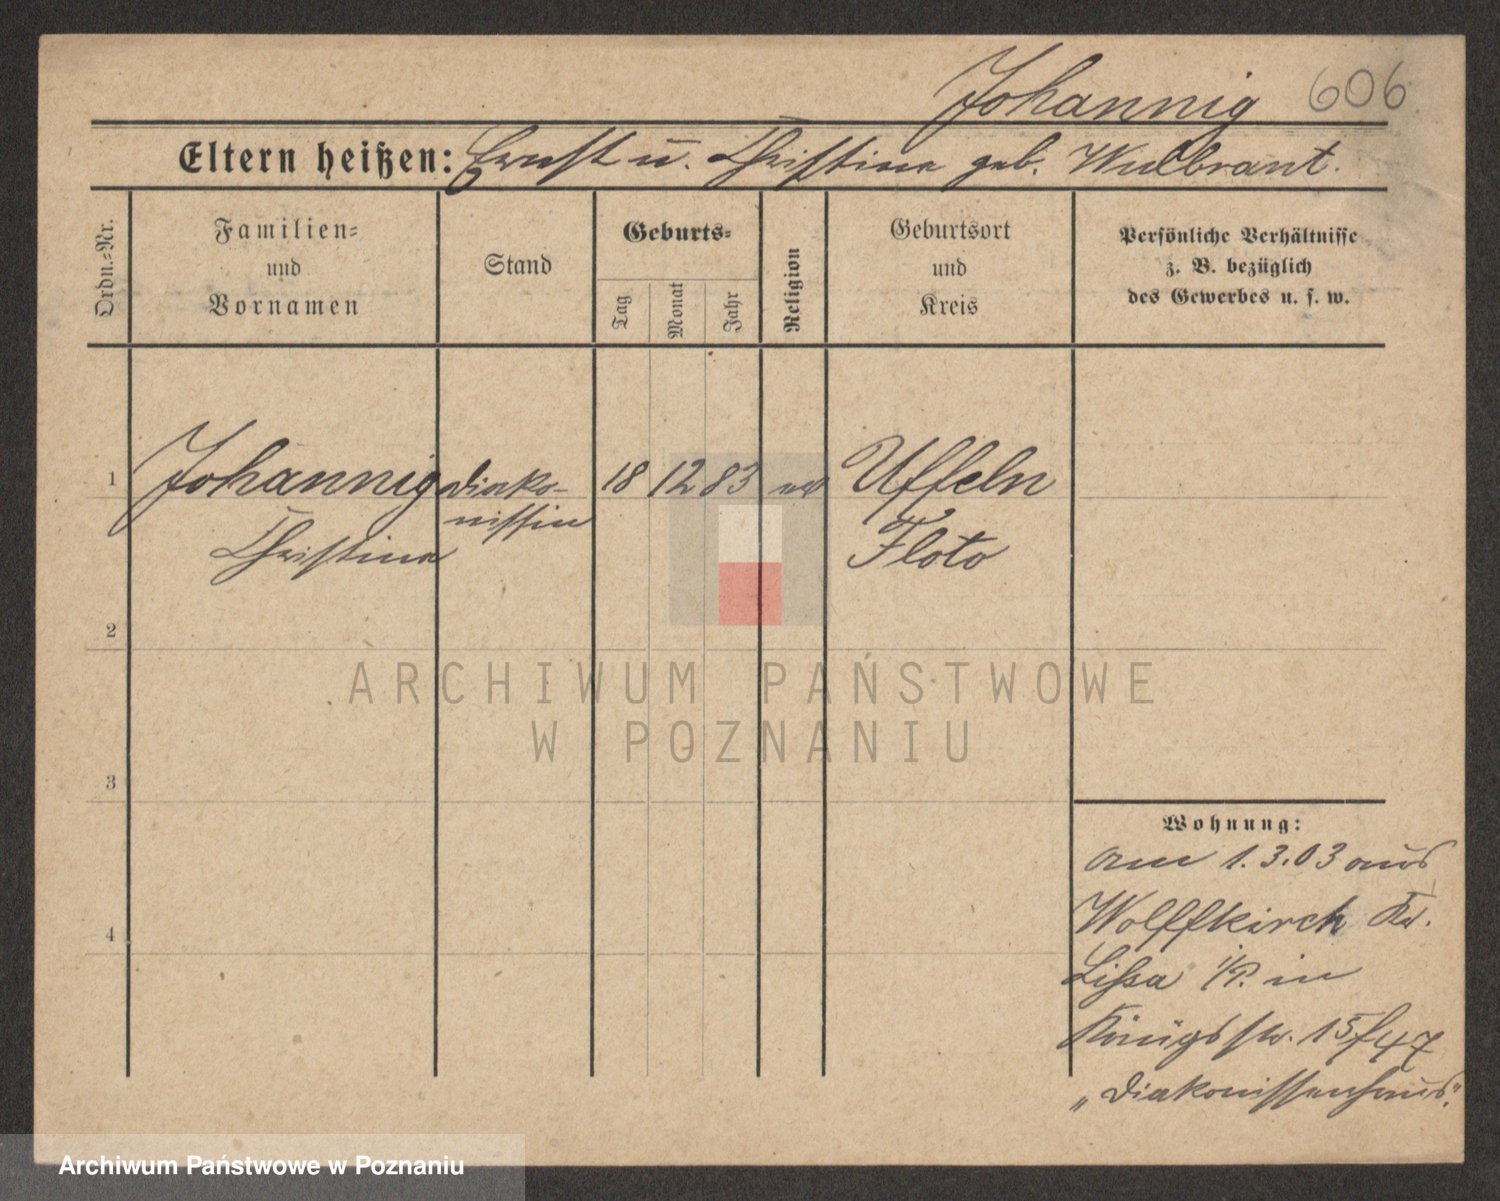 Johannig 606
Eltern heißen: Ernst u. Christine geb. Wulbrant.
Ordn.-Nr.
Familien-
und
Vornamen
Stand
Geburts-
Tag
Monat
Jahr
Religion
Geburtsort
und
Kreis
Persönliche Verhältnisse
z. B. bezüglich
des Gewerbes u. s. w.
1 Johannig Diako- 18 12 83 ev Uffeln
Christine nissin Floto
2
3
4
Wohnung:
am 1.3.03 aus
Wolffkirch Kr.
Lissa i/P. in
Königsstr. 15/47
„Diakonissenhaus“.
ARCHIWUM PAŃSTWOWE
W POZNANIU
Archiwum Państwowe w Poznaniu